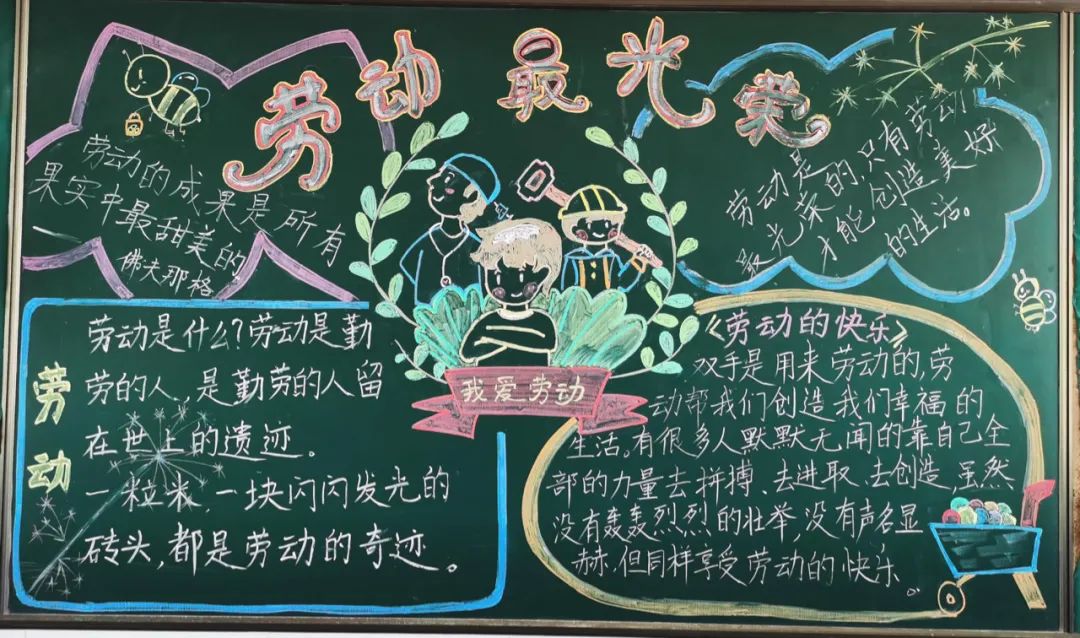 劳动最光荣
劳动的成果是所有
果实中最甜美的
佛夫那格
劳动是
最光荣的,只有劳动
才能创造美好
的生活。
我爱劳动
劳动
劳动是什么?劳动是勤
劳的人,是勤劳的人留
在世上的遗迹。
一粒米,一块闪闪发光的
砖头,都是劳动的奇迹。
《劳动的快乐》
双手是用来劳动的,劳
动帮我们创造我们幸福的
生活。有很多人默默无闻的靠自己全
部的力量去拼搏、去进取、去创造,虽然
没有轰轰烈烈的壮举,没有声名显
赫,但同样享受劳动的快乐。